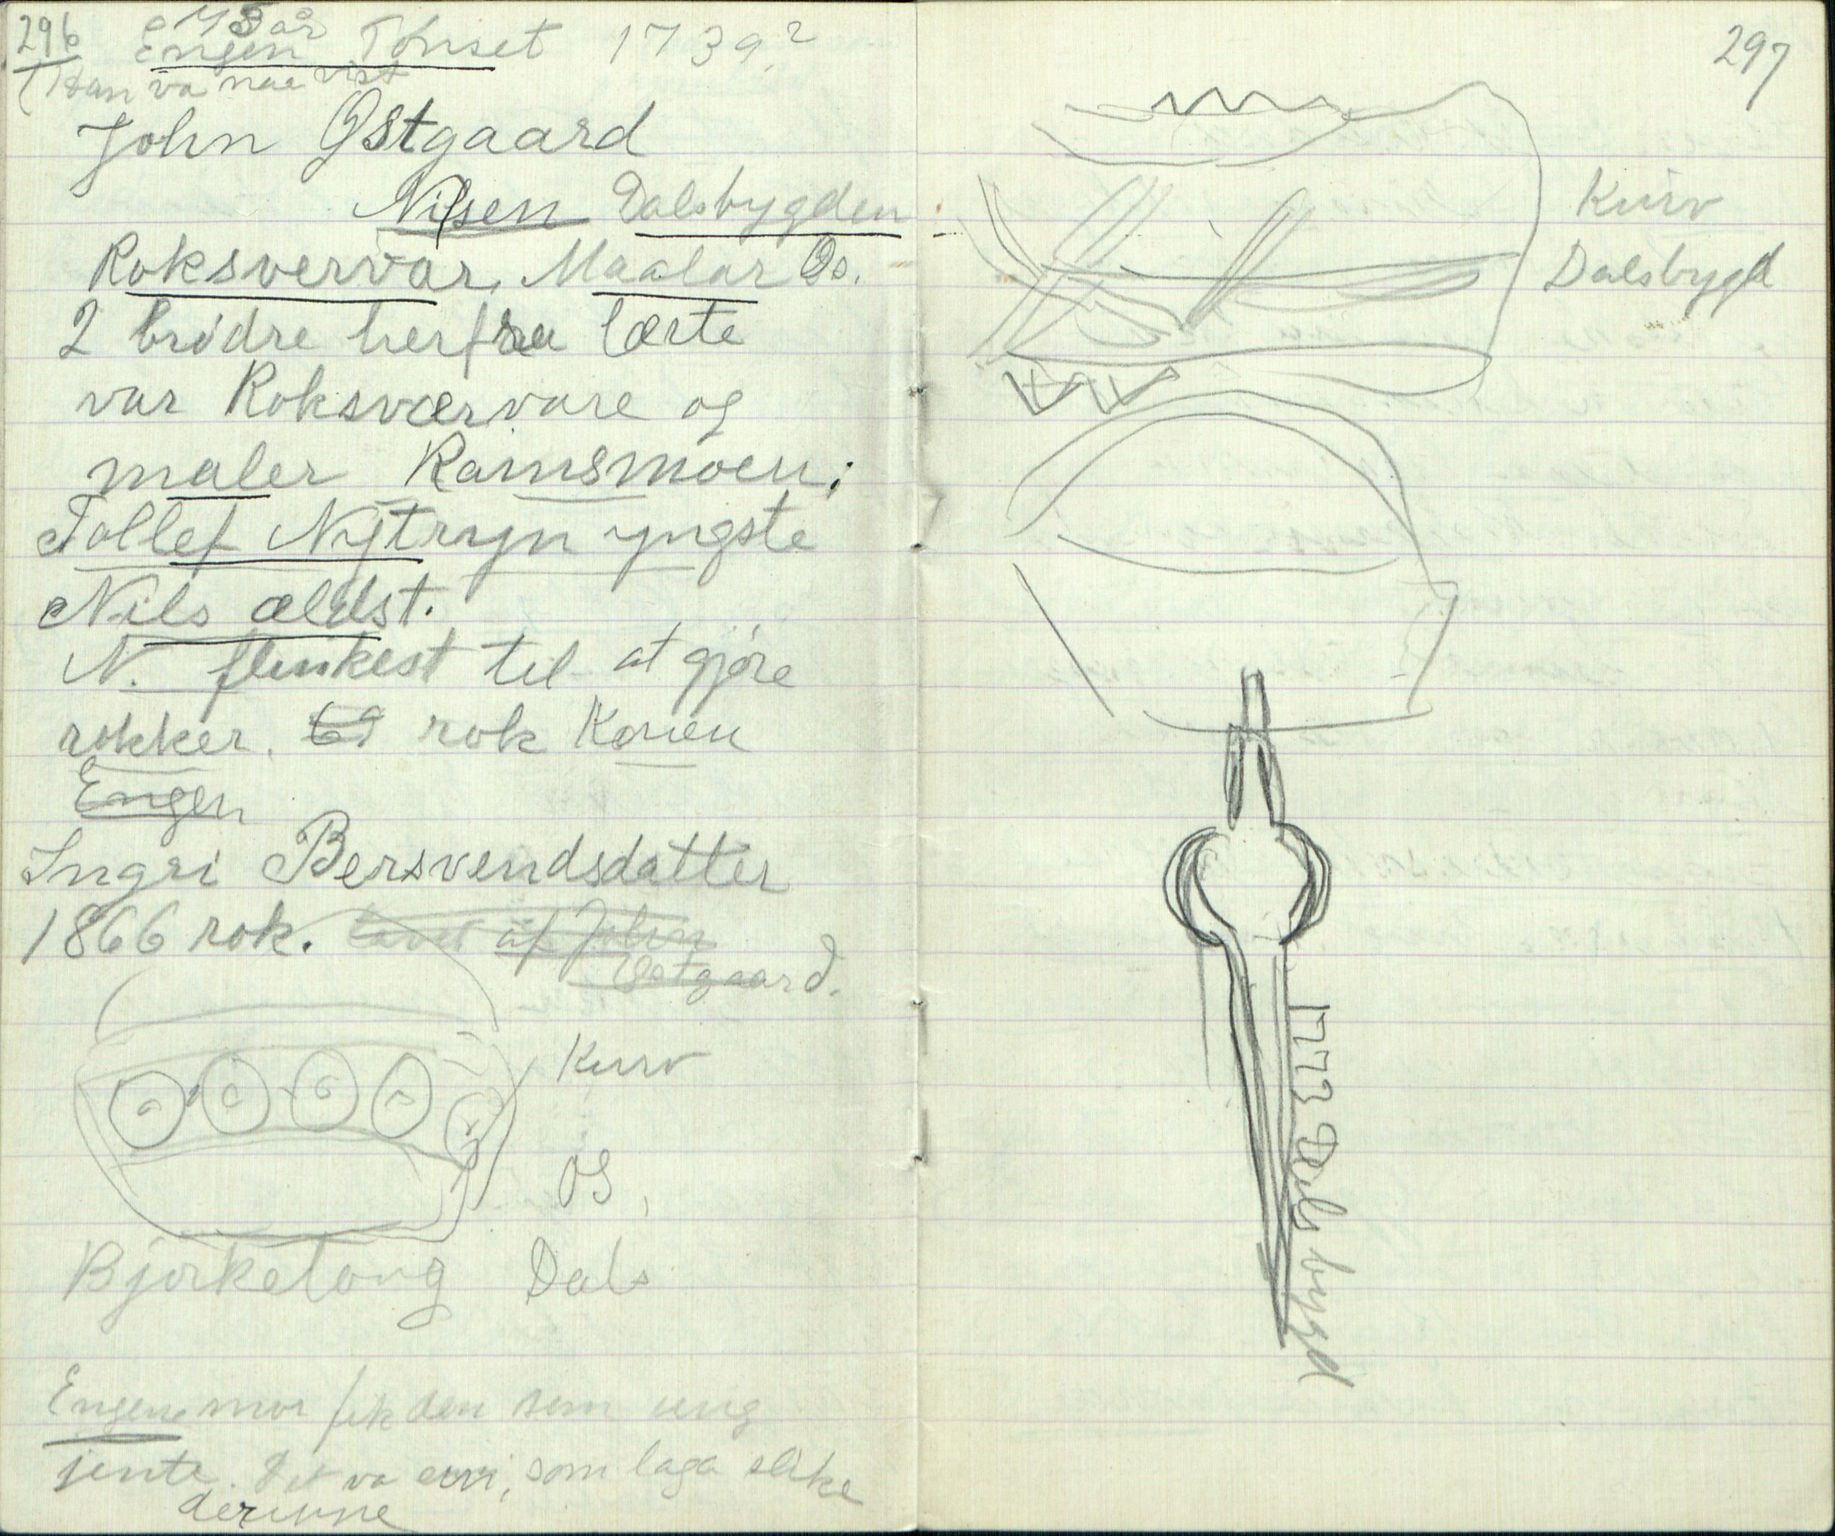 296
73 år
Engen Tønset 1739?
(Han va nae vist
John Østgaard
Nilsen Dalsbygden
Roksvervar, Maalar Os.
2 brødre herfra lærte
var Roksværvare og
maler Ramsmoen;
Tollef Nytrøyn yngste
Nils ældst.
N. flinkest til at gjøre
rokker. rok Koren
Engen
Ingri Bersvendsdatter
1866 rok. lavet af John
Østgaard.
Kurv
OS,
Bjørketoug Dals
Engens mor fik den som ung
jente. Det va ein, som laga slike
derinne
297
Kurv
Dalsbygd
1773 Dalsbygd